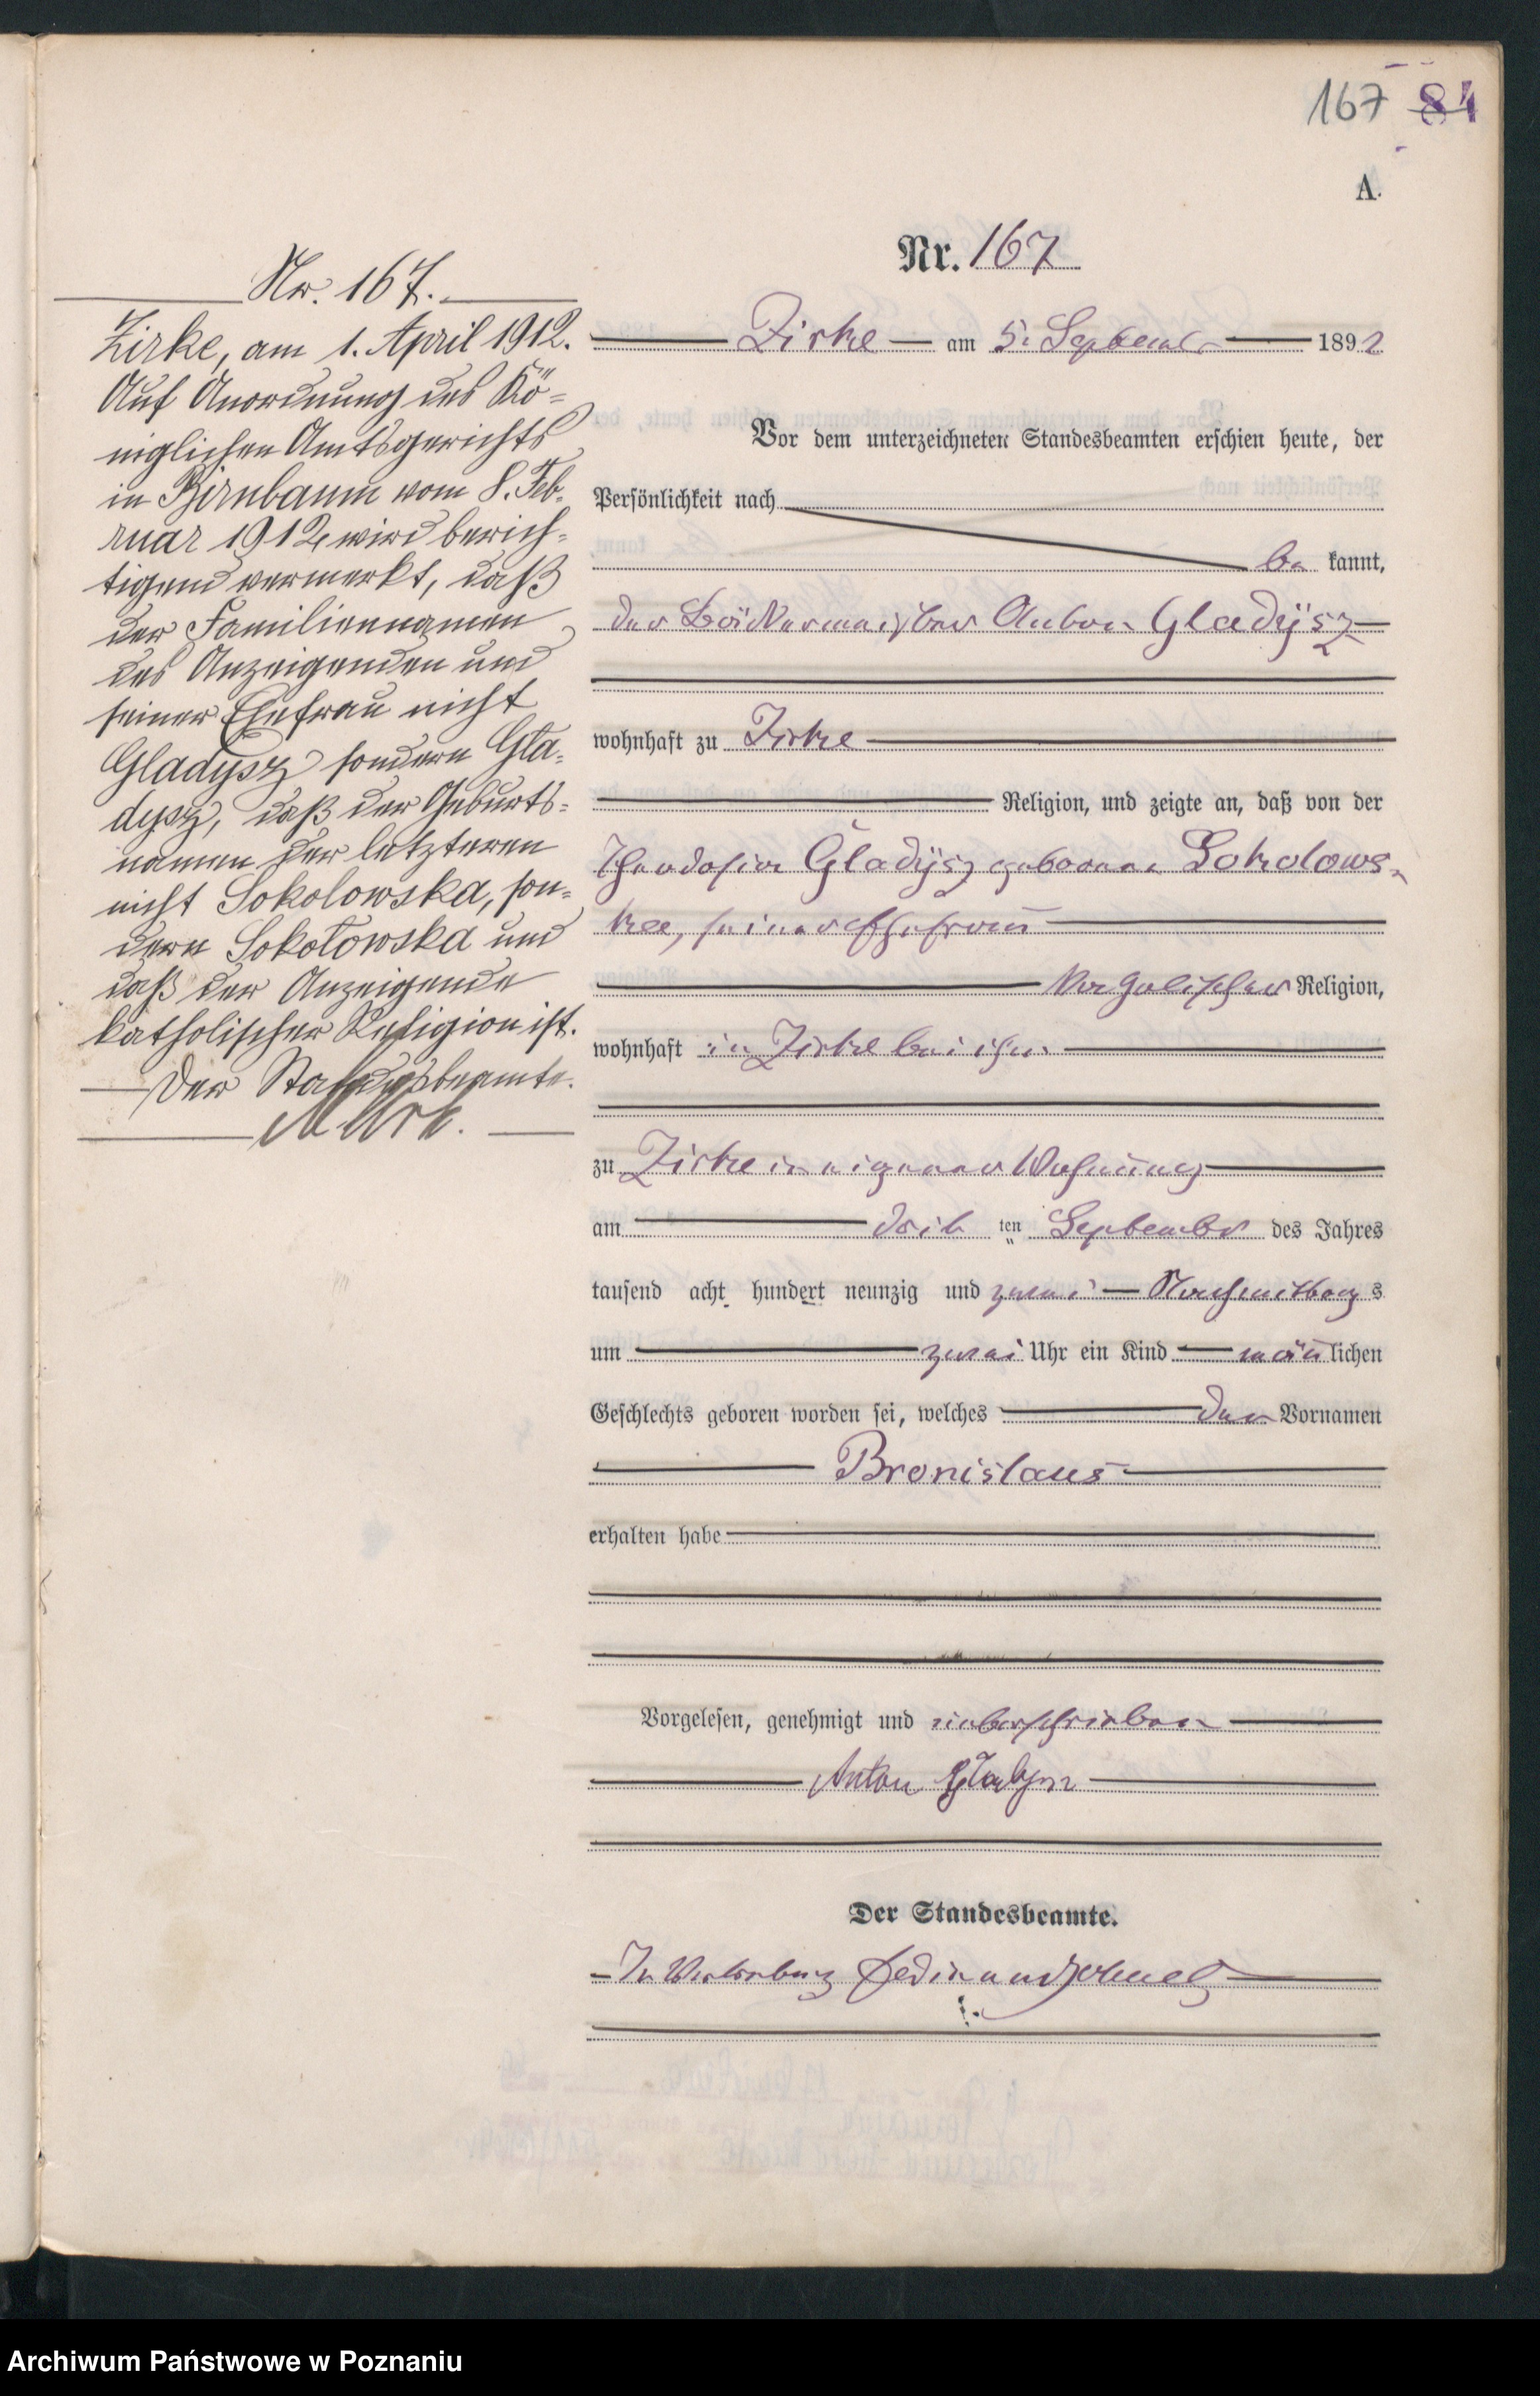 167 84
A.
Nr. 167.
Zirke, am 1. April 1912.
Auf Anordnung des Kö-
niglichen Amtsgerichts
in Birnbaum vom 8. Feb-
ruar 1912 wird berich-
tigend vermerkt, daß
der Familiennamen
des Anzeigenden und
seiner Ehefrau nicht
Gladysz sondern Gła-
dysz, daß der Geburts-
namen der letzteren
nicht Sokolowska, son-
dern Sokołowska und
daß der Anzeigende
katholischer Religion ist.
Der Standesbeamte.
Nr. 167
Zirke am 5. September 1892
Vor dem unterzeichneten Standesbeamten erschien heute, der
Persönlichkeit nach
be kannt,
der Böttchermeister Anton Gladÿsz
wohnhaft zu Zirke
Religion, und zeigte an, daß von der
Theodosia Gladÿsz geborene Sokolows-
ka, seiner Ehefrau
katholischer Religion,
wohnhaft in Zirke bei ihm
zu Zirke in eigener Wohnung
am drit ten September des Jahres
tausend acht hundert neunzig und zwei Nachmittag s
um zwei Uhr ein Kind männ lichen
Geschlechts geboren worden sei, welches den Vornamen
Bronislaus
erhalten habe
Vorgelesen, genehmigt und unterschrieben
Anton Gładysz
Der Standesbeamte.
In Vertretung
Archiwum Państwowe w Poznaniu